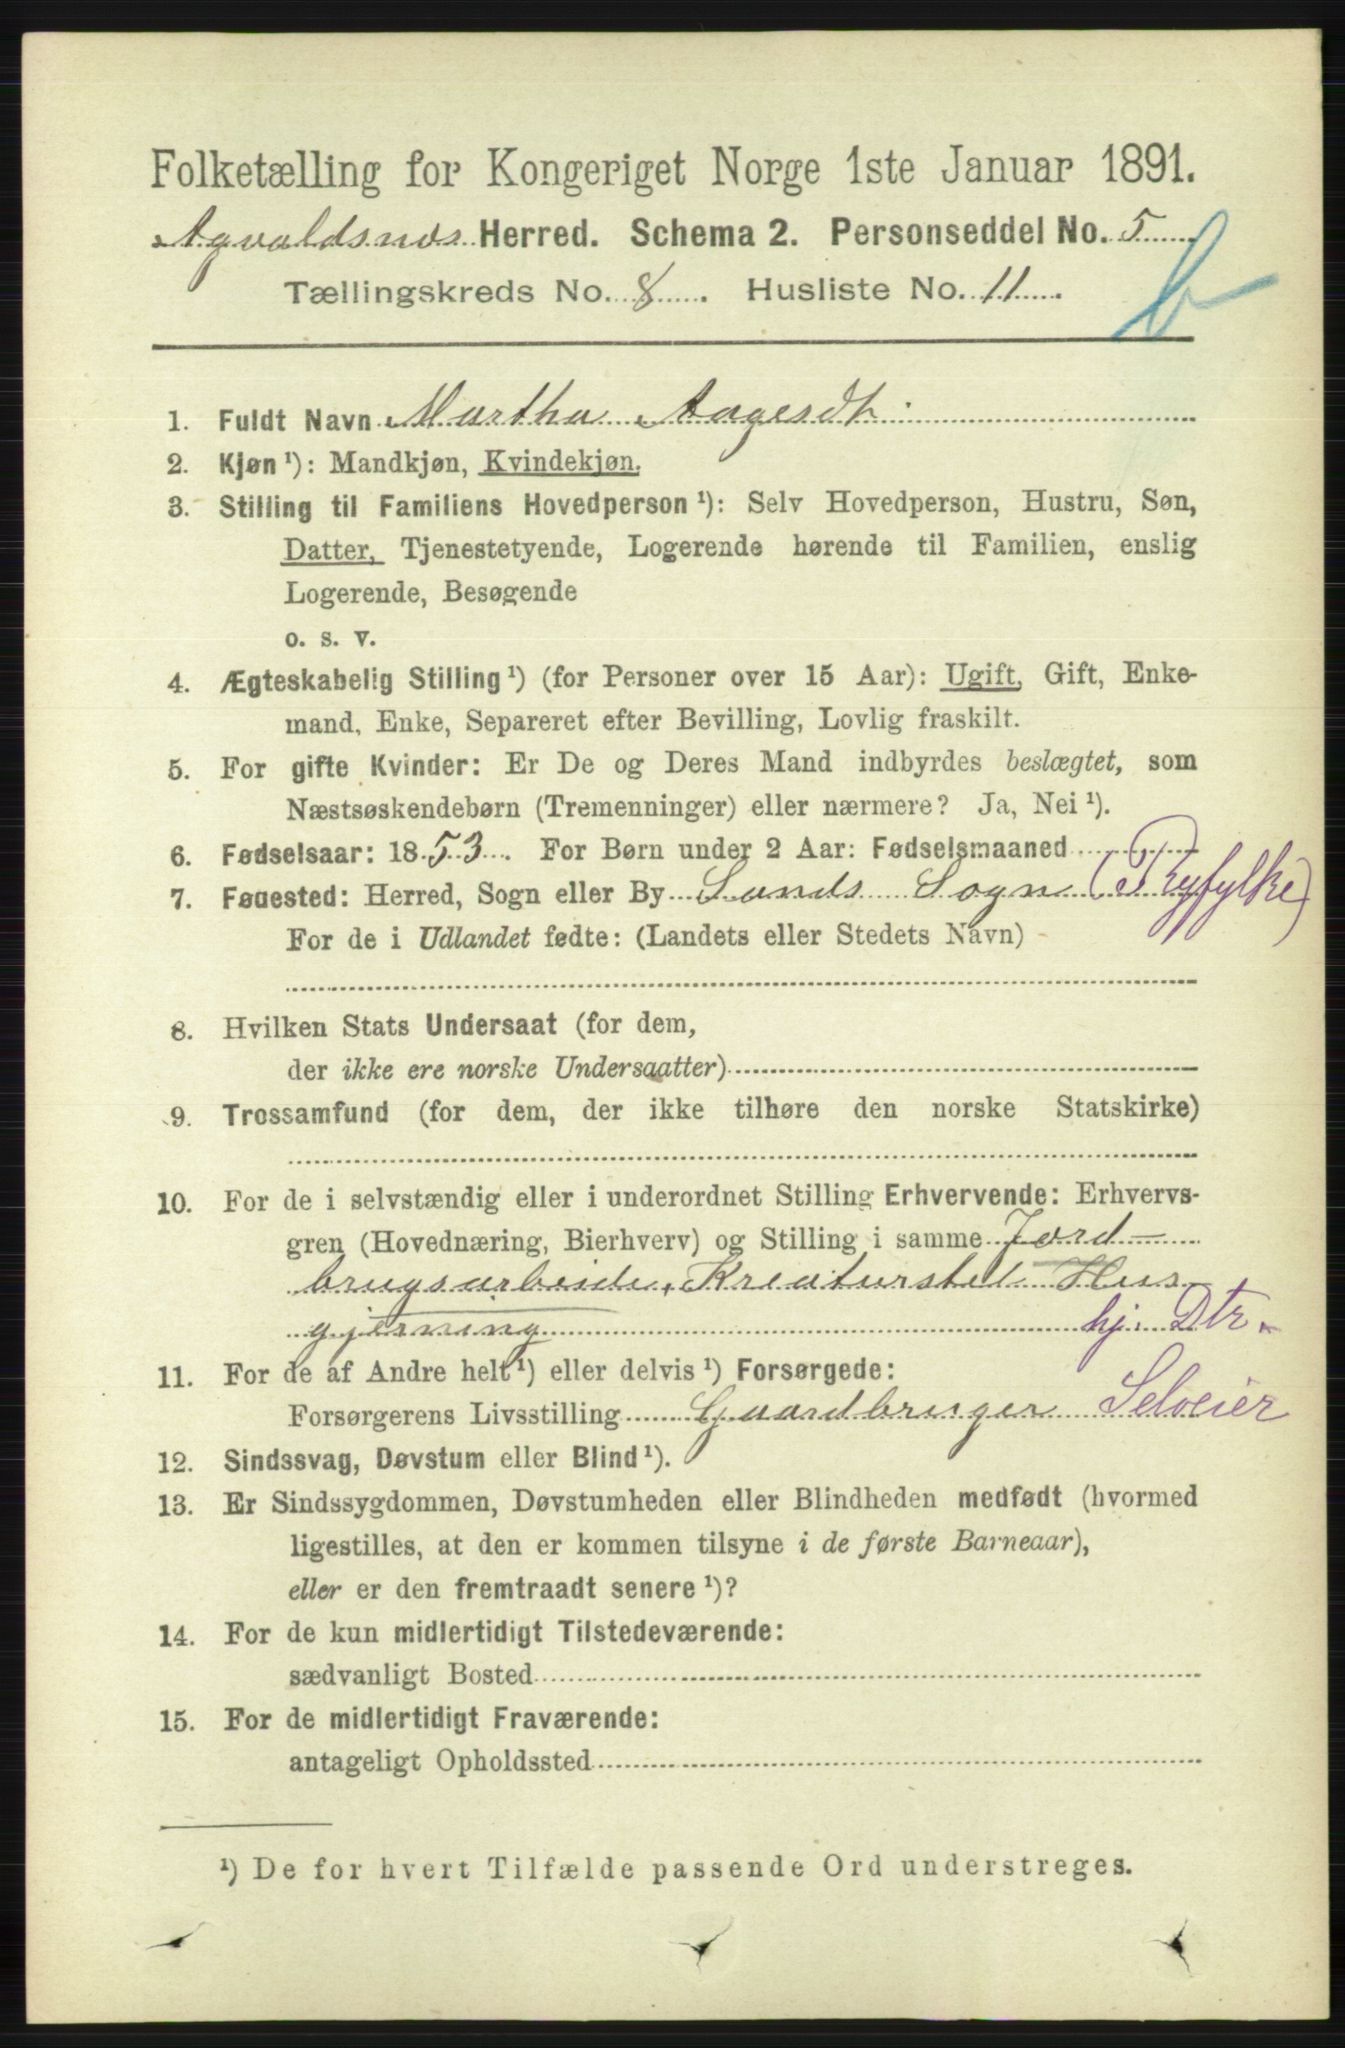 Folketælling for Kongeriget Norge 1ste Januar 1891.
Agvaldsnes Herred. Schema 2. Personseddel No. 5
b
Tællingskreds No. 8. Husliste No. 11.
1. Fuldt Navn Martha Aagesdt.
2. Kjøn ¹): Mandkjøn, Kvindekjøn.
3. Stilling til Familiens Hovedperson ¹): Selv Hovedperson, Hustru, Søn,
Datter, Tjenestetyende, Logerende hørende til Familien, enslig
Logerende, Besøgende
o. s. v.
4. Ægteskabelig Stilling ¹) (for Personer over 15 Aar): Ugift, Gift, Enke-
mand, Enke, Separeret efter Bevilling, Lovlig fraskilt.
5. For gifte Kvinder: Er De og Deres Mand indbyrdes beslægtet, som
Næstsøskendebørn (Tremenninger) eller nærmere? Ja, Nei ¹).
6. Fødselsaar: 1853. For Børn under 2 Aar: Fødselsmaaned
7. Fødested: Herred, Sogn eller By Sands Sogn (Ryfylke)
For de i Udlandet fødte: (Landets eller Stedets Navn)
8. Hvilken Stats Undersaat (for dem,
der ikke ere norske Undersaatter)
9. Trossamfund (for dem, der ikke tilhøre den norske Statskirke)
10. For de i selvstændig eller i underordnet Stilling Erhvervende: Erhvervs-
gren (Hovednæring, Bierhverv) og Stilling i samme Jord-
brugsarbeide, Kreaturstel Hus-
gjerning hj. Dtr.
11. For de af Andre helt ¹) eller delvis ¹) Forsørgede:
Forsørgerens Livsstilling Gaardbruger Selveier
12. Sindssvag, Døvstum eller Blind ¹).
13. Er Sindssygdommen, Døvstumheden eller Blindheden medfødt (hvormed
ligestilles, at den er kommen tilsyne i de første Barneaar),
eller er den fremtraadt senere ¹)?
14. For de kun midlertidigt Tilstedeværende:
sædvanligt Bosted
15. For de midlertidigt Fraværende:
antageligt Opholdssted
¹) De for hvert Tilfælde passende Ord understreges.